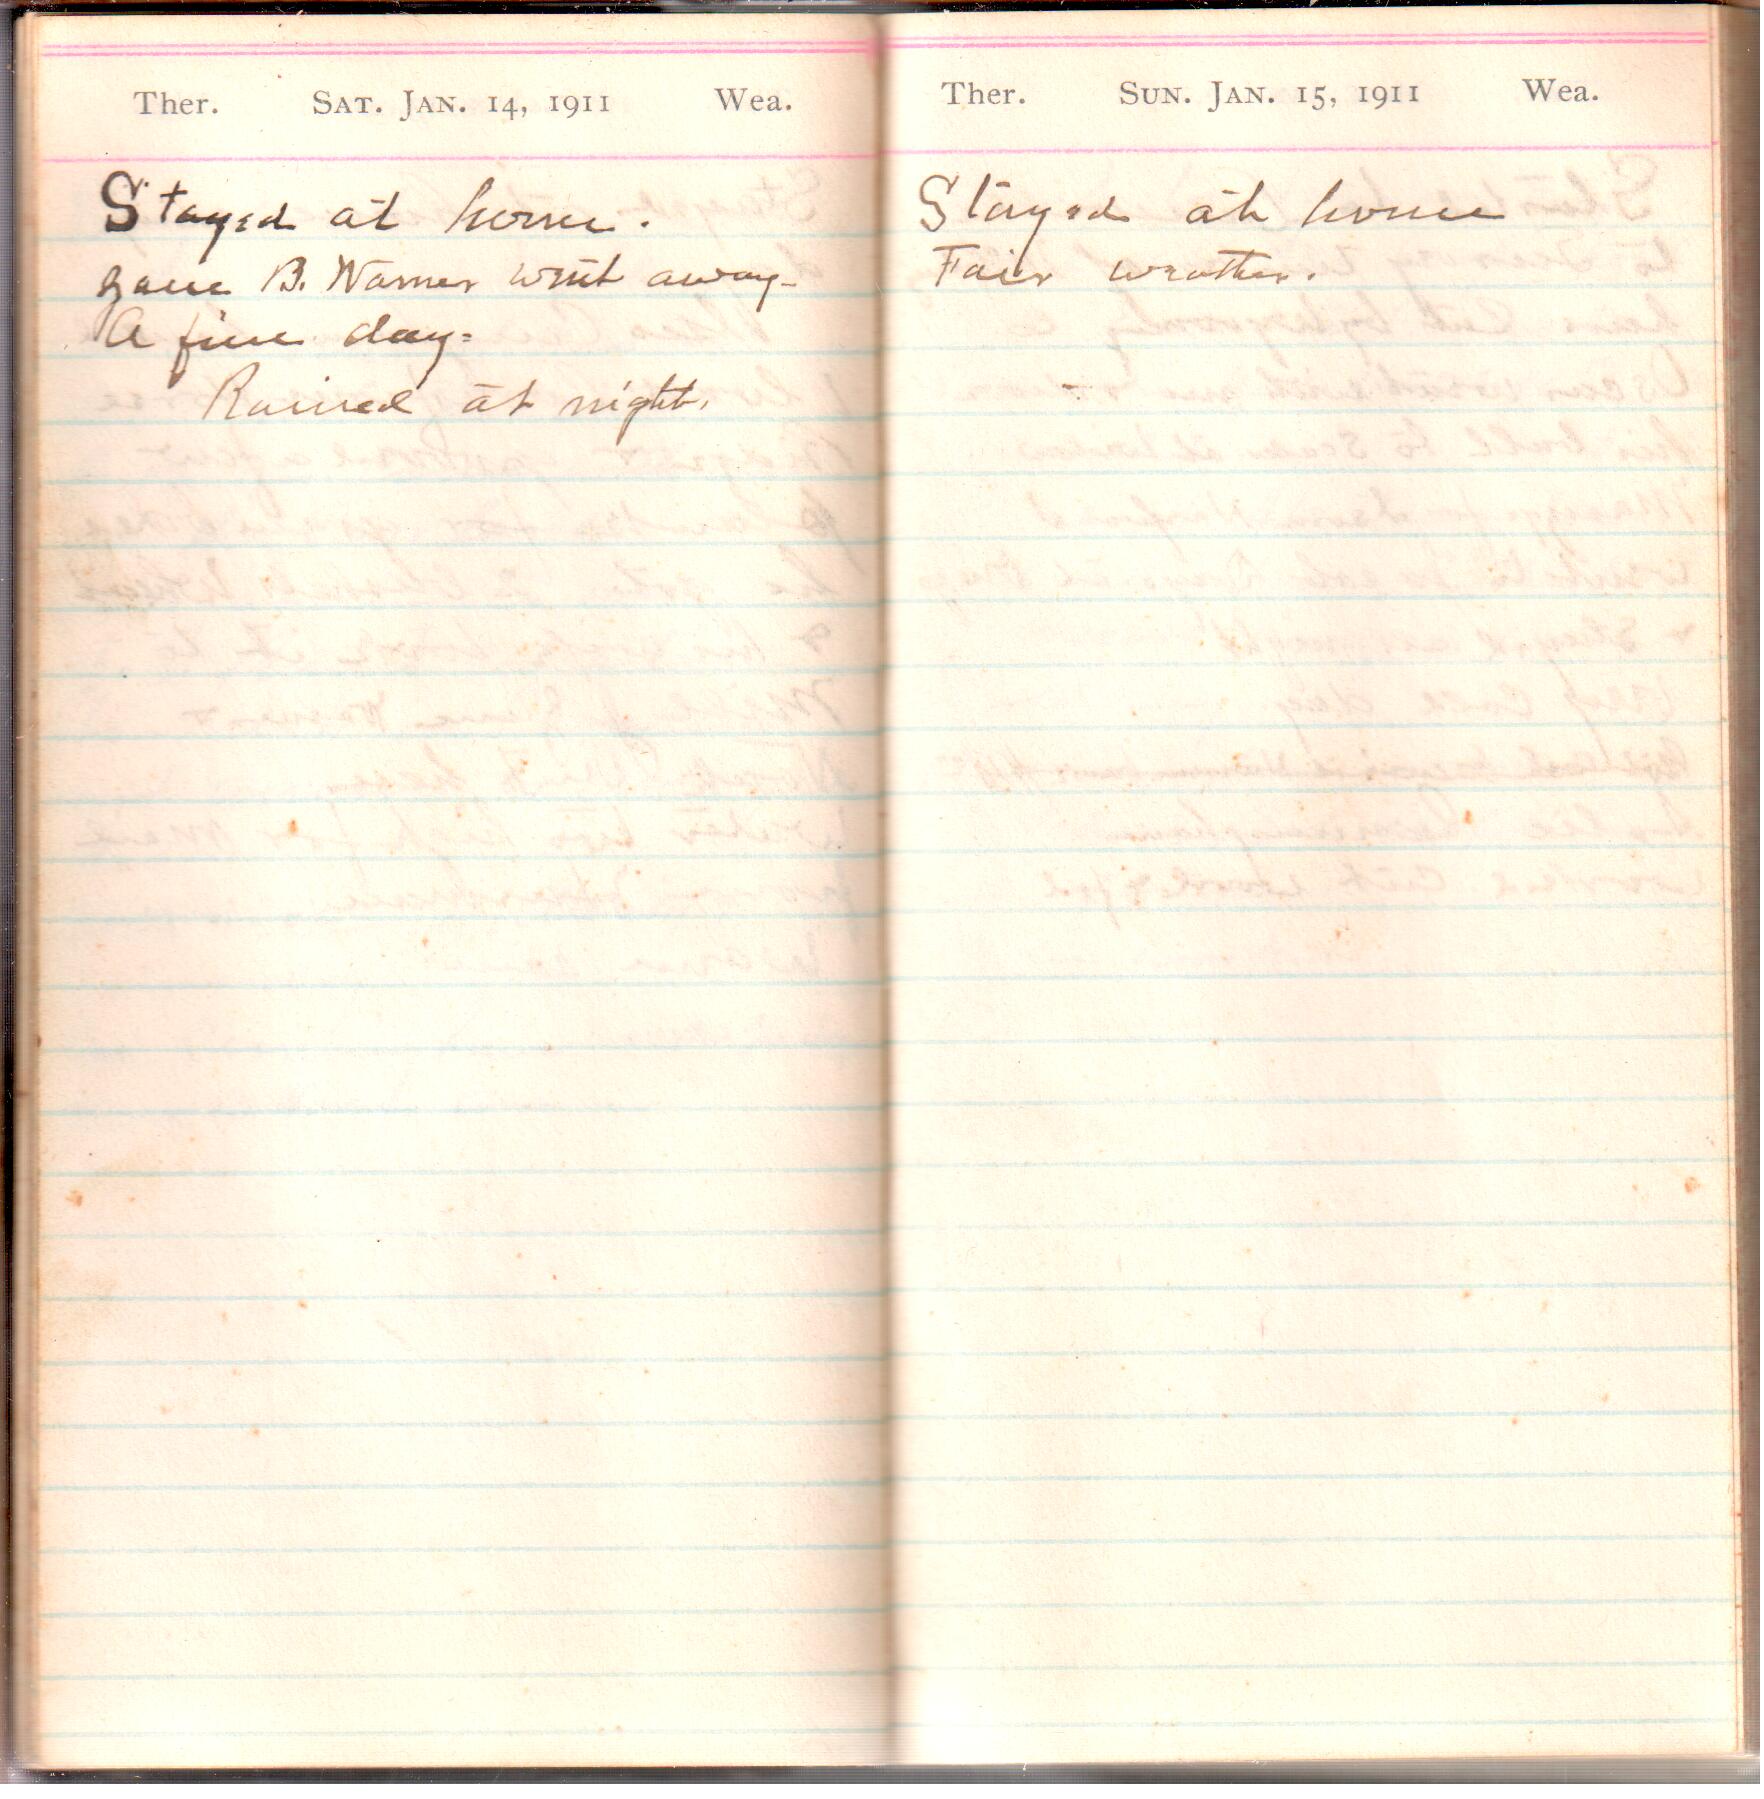 Ther. SAT. JAN. 14, 1911 Wea.
Stayed at home.
B. Warner went away-
A fine day=
Rained at night.
Ther. SUN. JAN. 15, 1911 Wea.
Stayed at home
Fair weather.